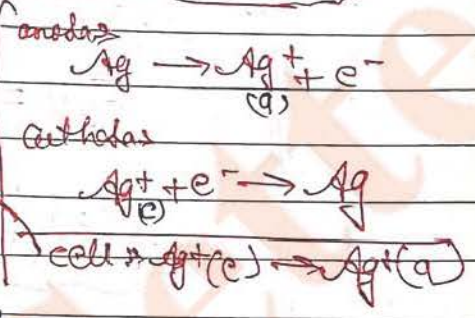 anode⇒
Ag → Ag⁺ + e⁻
(a)
Cathode⇒
Ag⁺ + e⁻ → Ag
(c)
cell ⇒ Ag⁺(c) → Ag⁺(a)